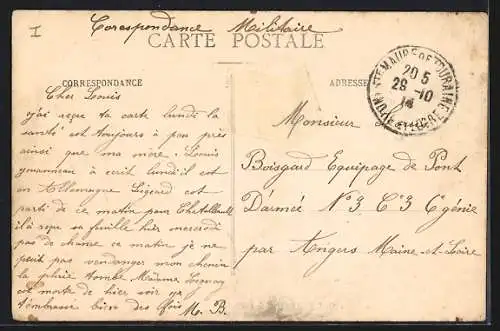 I
Correspondance Militaire
CARTE POSTALE
CORRESPONDANCE
ADRESSE
STE MAURE DE TOURAINE
20 5
29 -10
14
INDRE ET LOIRE
Cher Louis
j'ai reçu ta carte lundi la
santé est toujours a peu près
ainsi que ma mère. Louis
a écrit lundi il est
en Allemagne Ligeard est
parti de ce matin pour Chatellerault
il a reçu sa feuille hier mercredi
pas de chance ce matin je ne
peut pas vendanger mon chenin
la pluie tombe Madame
est morte de hier soir je
t'embrasse bien des fois M. B.
Monsieur
Boisgard Equipage de Pont
D'armée N°3 Cie 3 Génie
par Angers Maine-et-Loire